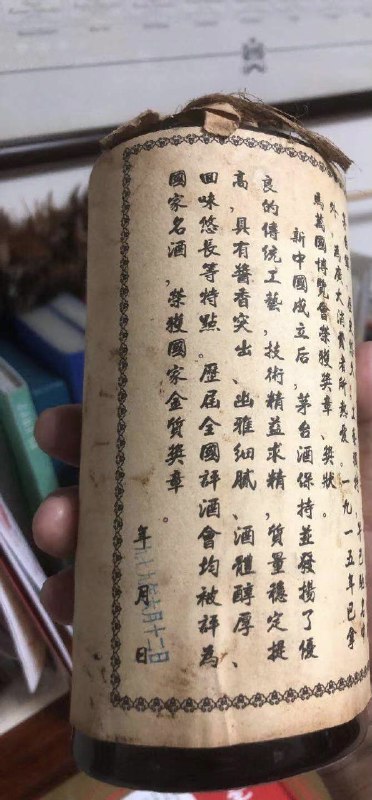 外，為廣大消費者所熱愛。一九一五年巴拿
馬萬國博覽會榮獲獎章、獎狀。
新中國成立后，茅台酒保持並發揚了優
良的傳統工藝，技術精益求精，質量穩定提
高，具有醬香突出、幽雅細膩、酒體醇厚、
回味悠長等特點。歷屆全國評酒會均被評為
國家名酒，榮獲國家金質獎章。
年 月 日